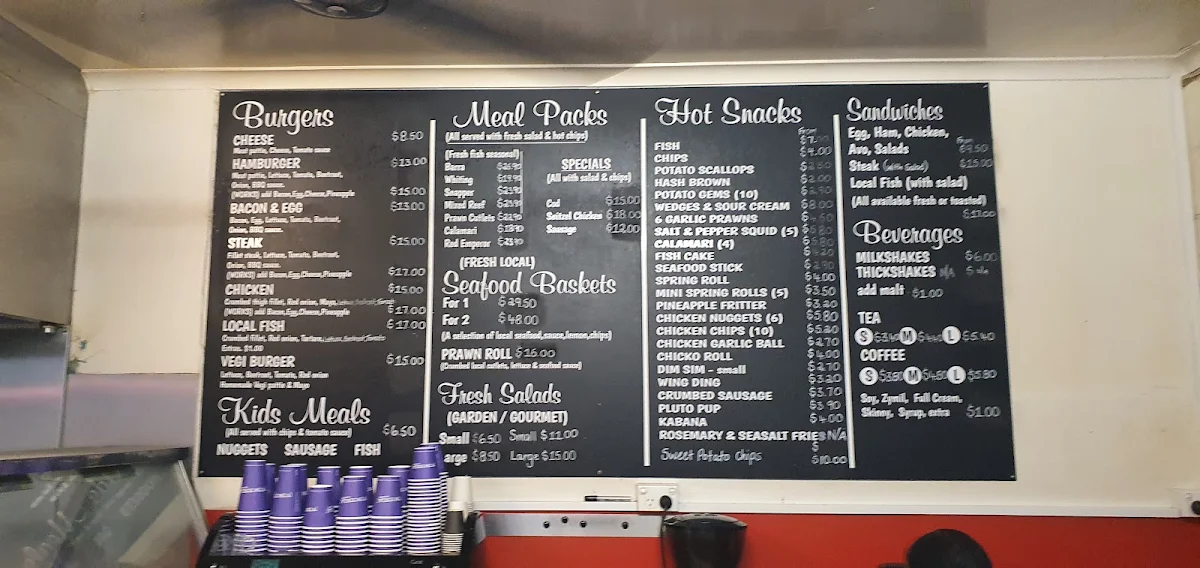 Burgers
CHEESE $8.50
Meat pattie, Cheese, Tomato sauce
HAMBURGER $13.00
Meat pattie, Lettuce, Tomato, Beetroot,
Onion, BBQ sauce.
(WORKS) add Bacon,Egg,Cheese,Pineapple $15.00
BACON & EGG $13.00
Bacon, Egg, Lettuce, Tomato, Beetroot,
Onion, BBQ sauce.
STEAK $15.00
Fillet steak, Lettuce, Tomato, Beetroot,
Onion, BBQ sauce.
(WORKS) add Bacon,Egg,Cheese,Pineapple $17.00
CHICKEN $15.00
Crumbed thigh fillet, Red onion, Mayo, Lettuce, Beetroot, Tomato
(WORKS) add Bacon,Egg,Cheese,Pineapple $17.00
LOCAL FISH $17.00
Crumbed fillet, Red onion, Tartare, Lettuce, Beetroot, Tomato
Extras. $1.00
VEGI BURGER $15.00
Lettuce, Beetroot, Tomato, Red onion
Homemade Vegi pattie & Mayo
Kids Meals
(All served with chips & tomato sauce) $6.50
NUGGETS SAUSAGE FISH
Meal Packs
(All served with fresh salad & hot chips)
(Fresh fish seasonal)
Barra
Whiting
Snapper
Mixed Reef
Prawn Cutlets
Calamari
Red Emperor
(FRESH LOCAL)
SPECIALS
(All with salad & chips)
Cod $15.00
Snitzel Chicken $18.00
Sausage $12.00
Seafood Baskets
For 1 $29.50
For 2 $48.00
(A selection of local seafood,sauce,lemon,chips)
PRAWN ROLL $16.00
(Crumbed local cutlets, lettuce & seafood sauce)
Fresh Salads
(GARDEN / GOURMET)
Small $6.50 Small $11.00
Large $8.50 Large $15.00
Hot Snacks
From
FISH
CHIPS $4.00
POTATO SCALLOPS
HASH BROWN $2.00
POTATO GEMS (10)
WEDGES & SOUR CREAM $8.00
6 GARLIC PRAWNS
SALT & PEPPER SQUID (5)
CALAMARI (4)
FISH CAKE
SEAFOOD STICK
SPRING ROLL $4.00
MINI SPRING ROLLS (5) $3.50
PINEAPPLE FRITTER $3.20
CHICKEN NUGGETS (6) $5.80
CHICKEN CHIPS (10) $5.20
CHICKEN GARLIC BALL $2.70
CHICKO ROLL $4.00
DIM SIM - small $2.70
WING DING $3.20
CRUMBED SAUSAGE $3.70
PLUTO PUP $3.90
KABANA $4.00
ROSEMARY & SEASALT FRIES N/A
Sweet Potato chips $10.00
Sandwiches
Egg, Ham, Chicken, From
Avo, Salads $9.50
Steak (with Salad) $15.00
Local Fish (with salad)
(All available fresh or toasted)
$17.00
Beverages
MILKSHAKES $6.00
THICKSHAKES N/A
add malt $1.00
TEA
S $3.40 M $4.40 L $5.40
COFFEE
S $3.80 M $4.80 L $5.80
Soy, Zymil, Full Cream,
Skinny, Syrup, extra $1.00